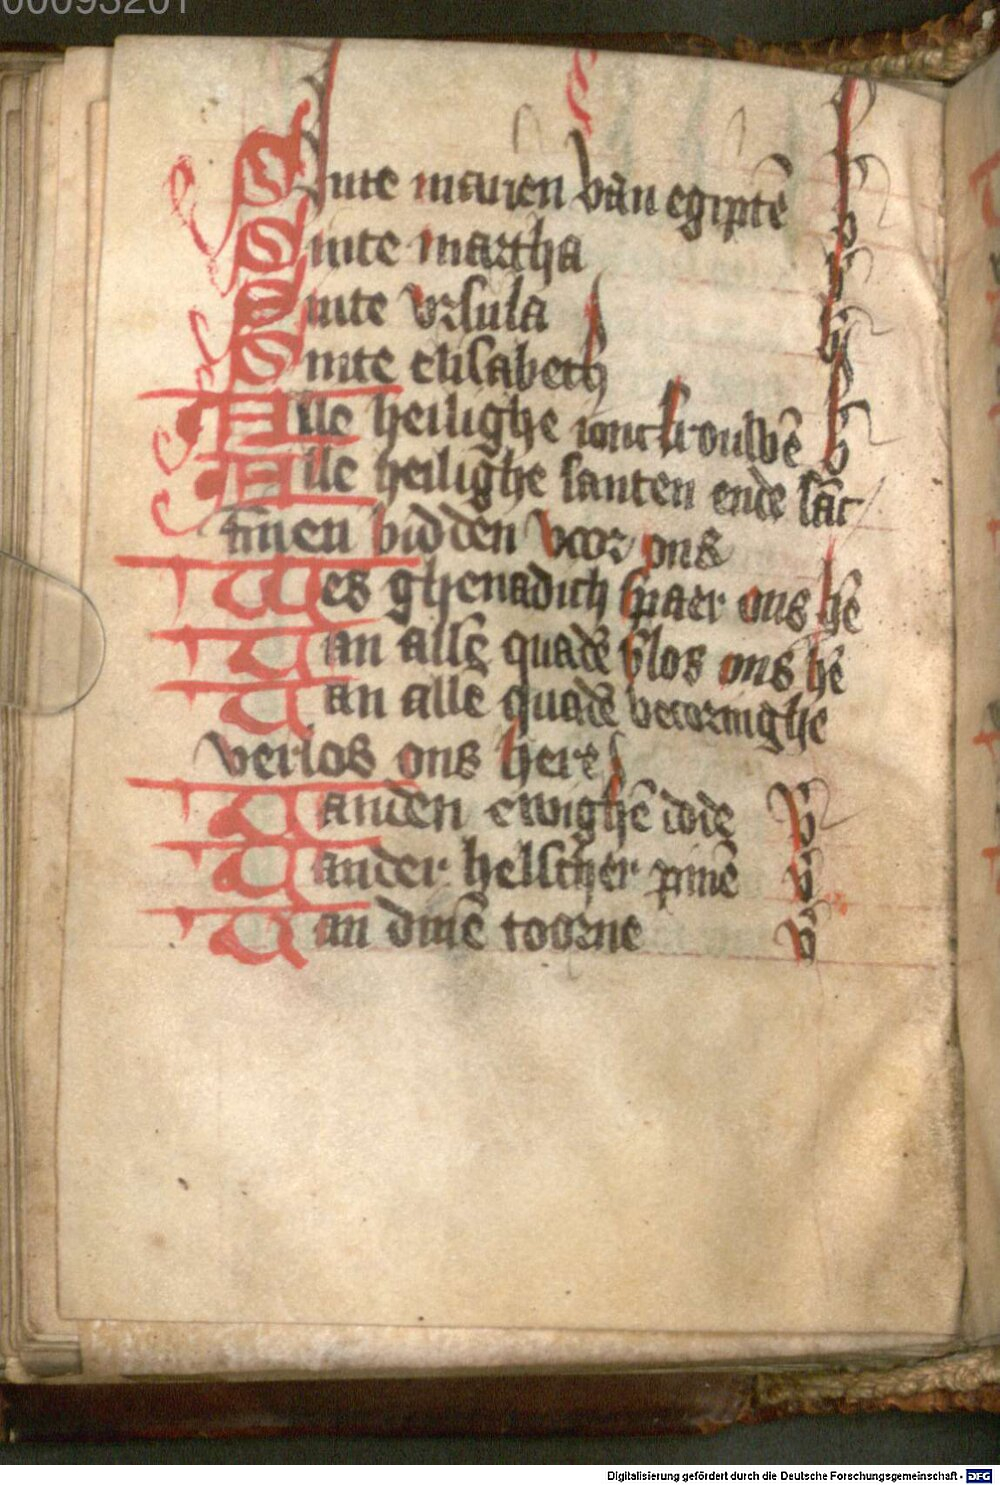 00093201
Sinte marien van egiptē b
Sinte martha b
Sinte vrsula b
Sinte elisabeth b
Alle heilighe ioncfrouwē b
Alle heilighe santen ende sāc
tinnen bidden voor ons
Wes ghenadich spaer ons hē
Van allē quadē v̄los ons hē
Van allē quadē becoringhe
verlos ons here
Vanden ewighē dode v̄
Vander helscher pinē v̄
Van dinē toorne v̄
Digitalisierung gefördert durch die Deutsche Forschungsgemeinschaft - DFG